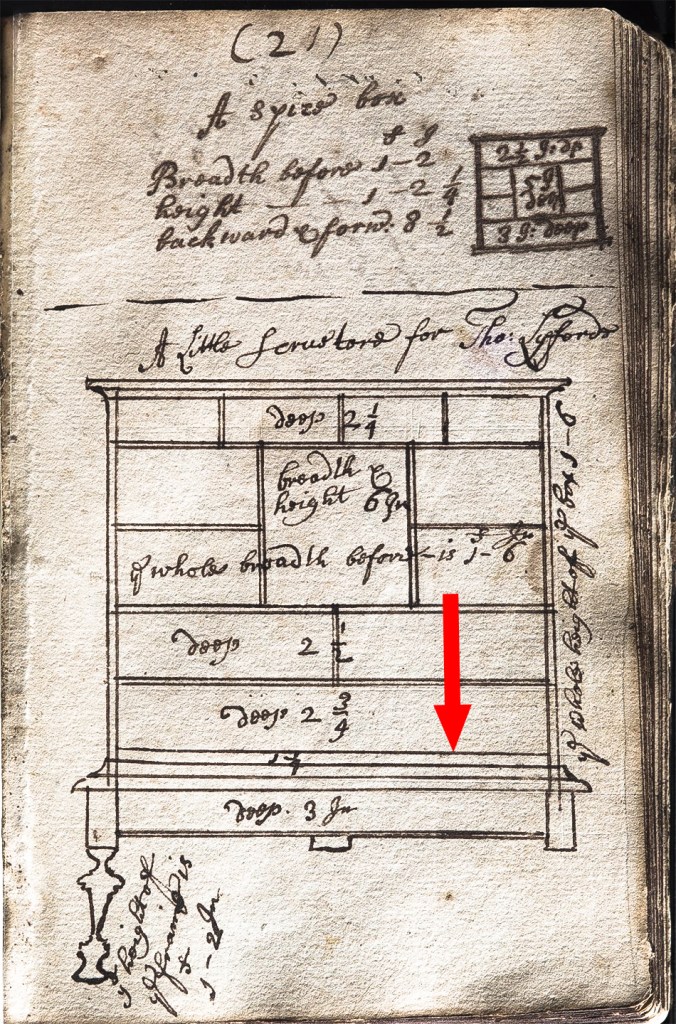 (21)
A spice box
f J
Breadth before 1-2
height - - 1-2 1/4
backward & forw: 8 1/2
2 1/2 J: dp
5 J
deep
3 J: deep
A Little Scrutore for Tho: Lyforde
deep 2 1/4
breadth &
height 6 Jn
f Jn
ye whole breadth before - is 1-6
deep 2 1/2
deep 2 3/4
1 1/4
deep. 3 Jn
ye whole height of ye box 1-6
ye height of
ye frame is
f
1-2 Jn